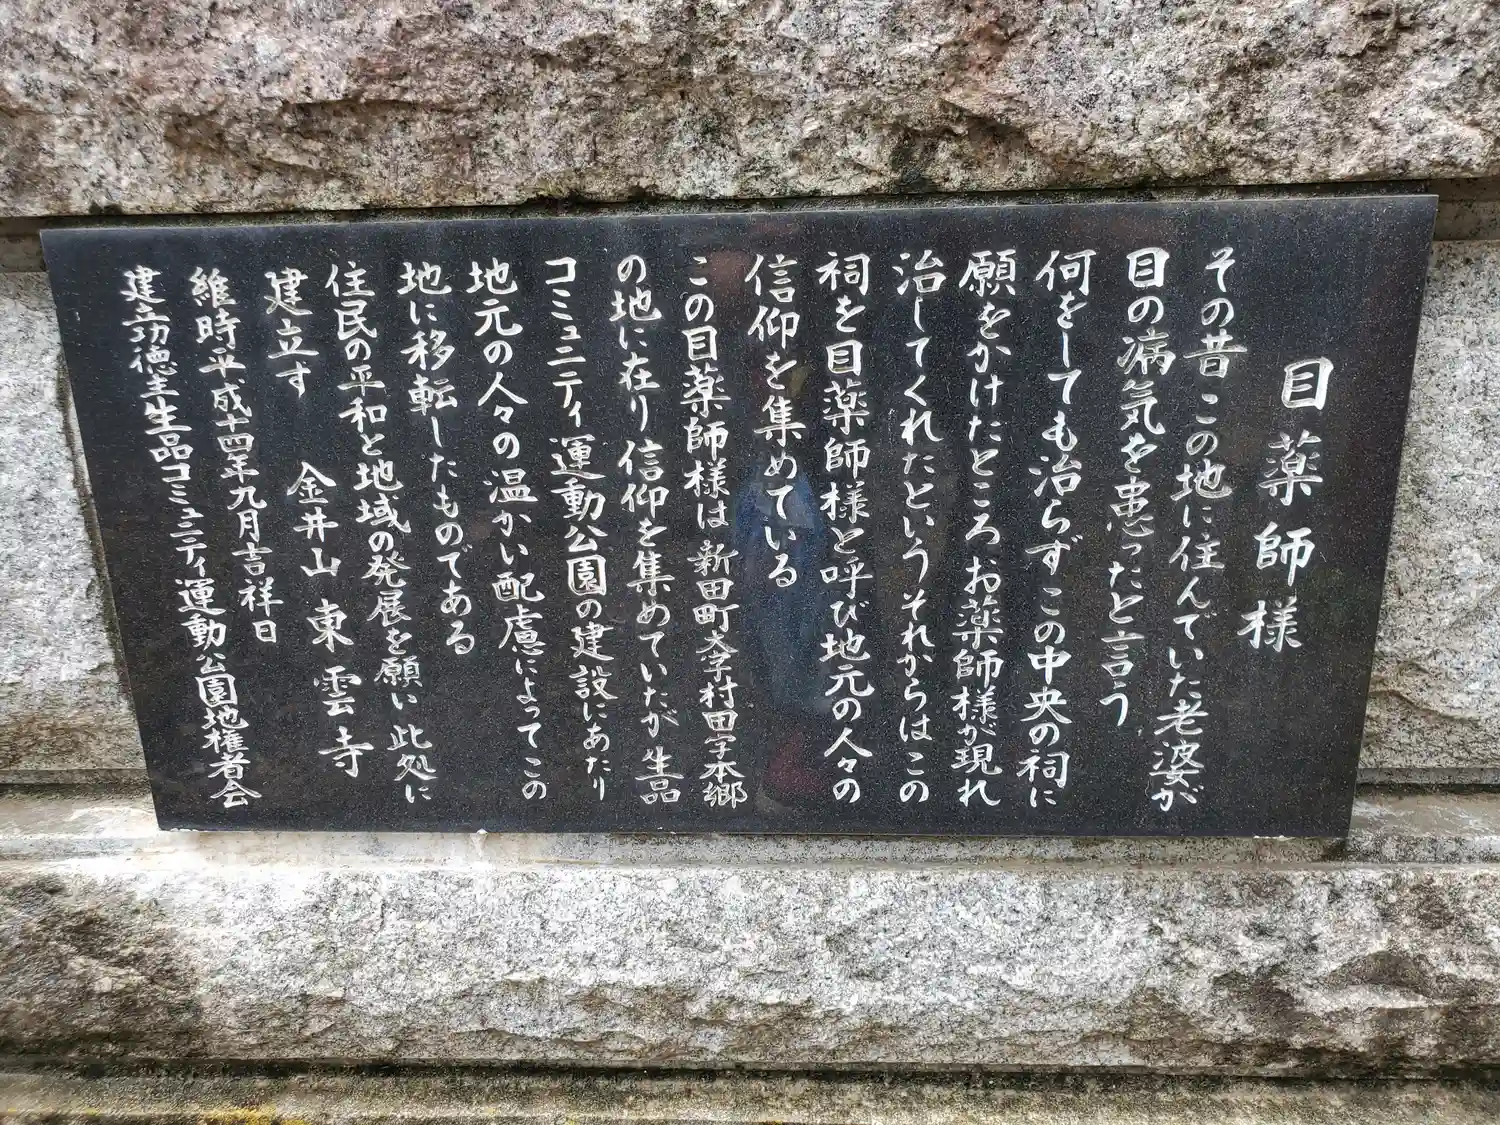 目薬師様
その昔この地に住んでいた老婆が
目の病気を患ったと言う
何をしても治らずこの中央の祠に
願をかけたところお薬師様が現れ
治してくれたというそれからはこの
祠を目薬師様と呼び地元の人々の
信仰を集めている
この目薬師様は新田町大字村田字本郷
の地に在り信仰を集めていたが生品
コミュニティ運動公園の建設にあたり
地元の人々の温かい配慮によってこの
地に移転したものである
住民の平和と地域の発展を願い此処に
建立す 金井山 東雲寺
維時平成十四年九月吉祥日
建立功徳主生品コミュニティ運動公園地権者会